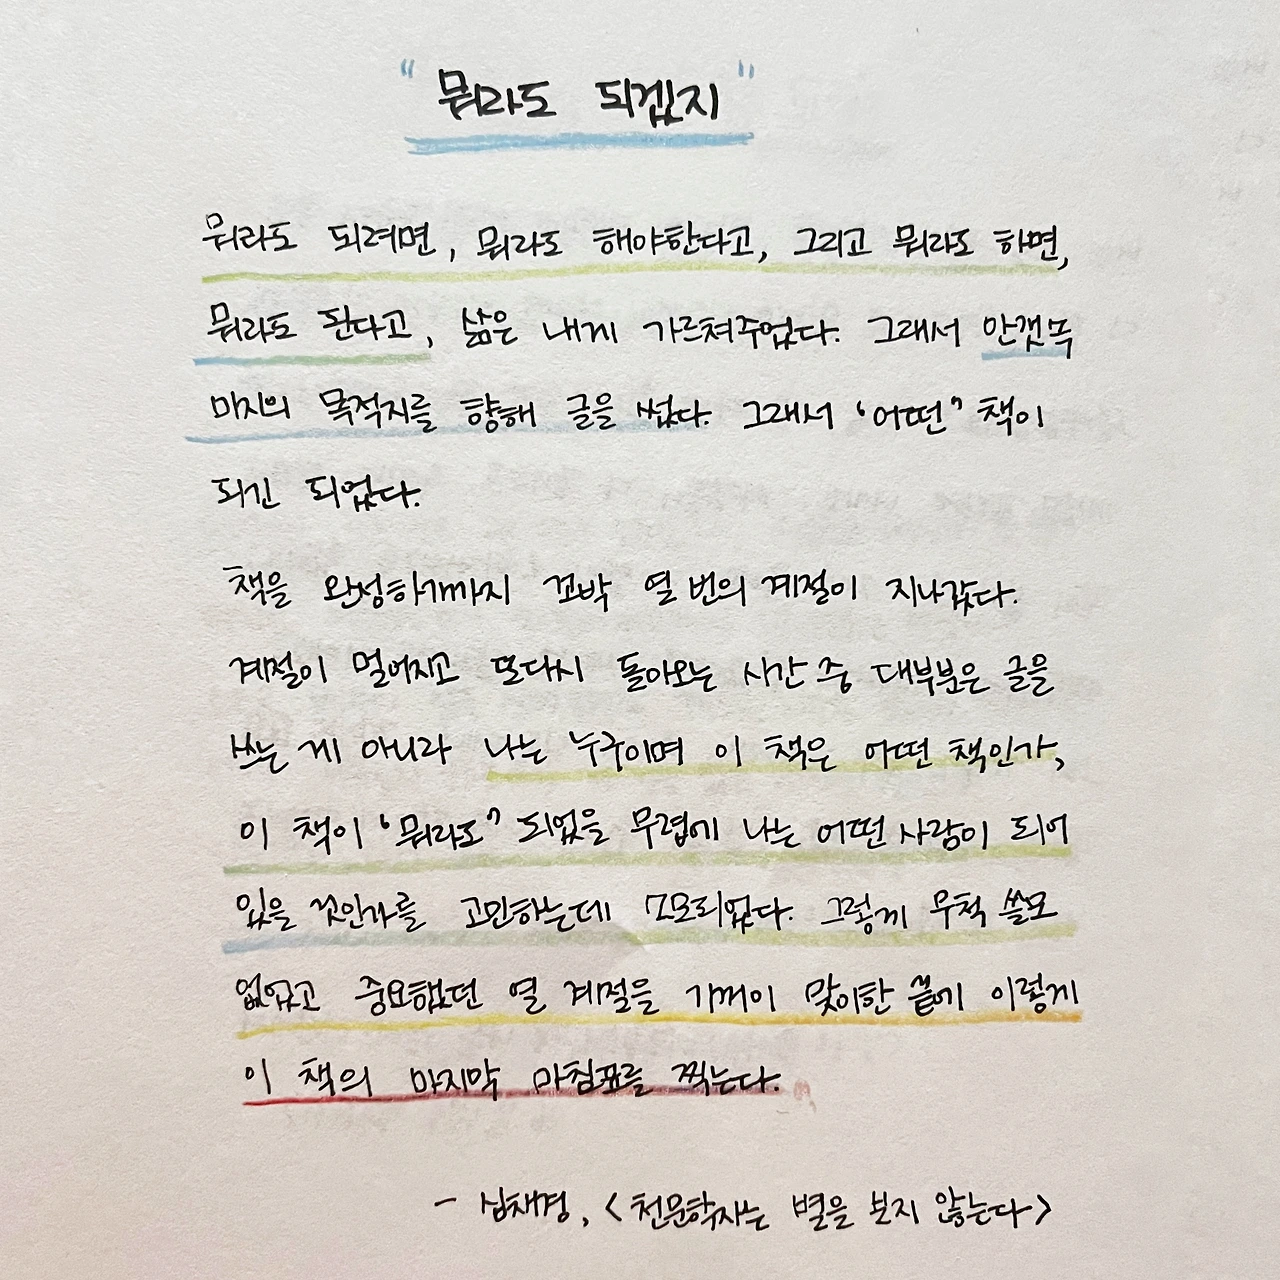 "뭐라도 되겠지"
뭐라도 되려면, 뭐라도 해야한다고, 그리고 뭐라도 하면,
뭐라도 된다고, 삶은 내게 가르쳐주었다. 그래서 안갯속
마지의 목적지를 향해 글을 썼다. 그래서 '어떤' 책이
되긴 되었다.
책을 완성하기까지 꼬박 열 번의 계절이 지나갔다.
계절이 멀어지고 또다시 돌아오는 시간 중 대부분은 글을
쓰는 게 아니라 나는 누구이며 이 책은 어떤 책인가,
이 책이 '뭐라도' 되었을 무렵에 나는 어떤 사람이 되어
있을 것인가를 고민하는데 쪼모되었다. 그렇게 무척 쓸모
없었고 중요했던 열 계절을 기꺼이 맞이한 끝에 이렇게
이 책의 마지막 마침표를 찍는다.
- 심채경, <천문학자는 별을 보지 않는다>